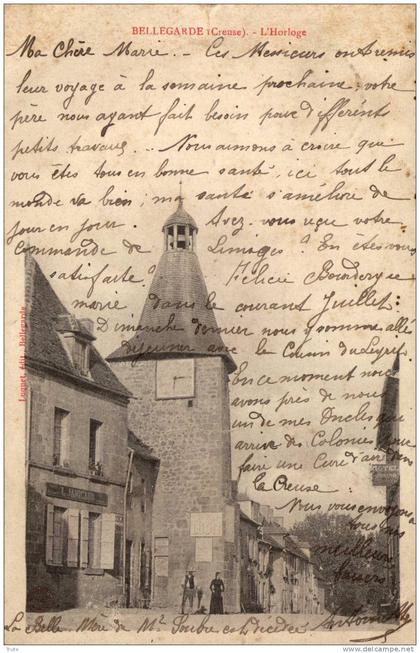 BELLEGARDE (Creuse). - L'Horloge
Ma Chère Marie. - Ces Messieurs ont remis
leur voyage à la semaine prochaine, votre
père nous ayant fait besoin pour différents
petits travaux... Nous aimons à croire que
vous êtes tous en bonne santé, ici tout le
monde va bien; ma santé s'améliore de
jour en jour. Avez-vous reçu votre
commande de Limoges? En êtes-vous
satisfaite? Félicie se
marie dans le courant Juillet:
Dimanche dernier nous y sommes allés
déjeuner avec le Cousin
En ce moment nous
avons près de nous
un de mes Oncles qui
arrive des Colonies pour
faire une Cure d'air dans
la Creuse:
Nous vous envoyons
tous nos
meilleurs
baisers
Antoinette
HOTEL
Luquet, édit., Bellegarde
La Belle Mère de Mr est décédée